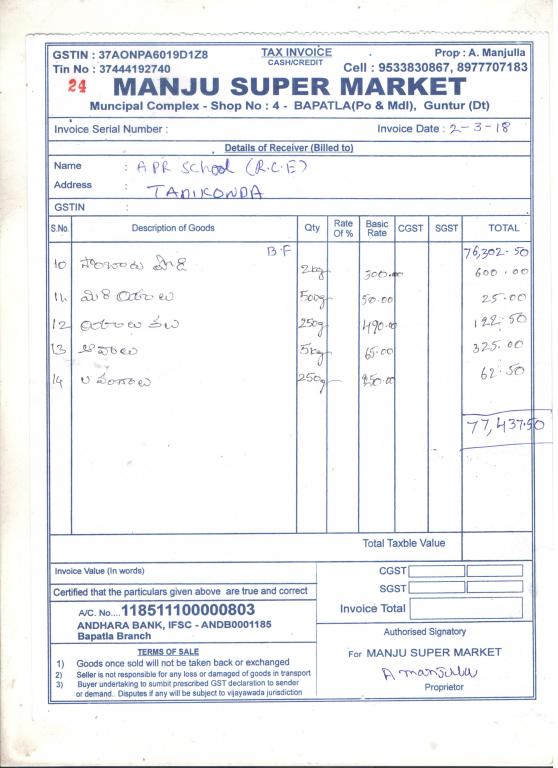 GSTIN : 37AONPA6019D1Z8 TAX INVOICE Prop : A. Manjulla
Tin No : 37444192740 CASH/CREDIT Cell : 9533830867, 8977707183
24 MANJU SUPER MARKET
Muncipal Complex - Shop No : 4 - BAPATLA(Po & Mdl), Guntur (Dt)
Invoice Serial Number : Invoice Date : 2-3-18
Details of Receiver (Billed to)
Name : APR School (R.C.E)
Address : TADIKONDA
GSTIN :
S.No. Description of Goods Qty Rate Of % Basic Rate CGST SGST TOTAL
B.F 76,302.50
10 సాంబారు పొడి 2kg 300.00 600.00
11 500g 50.00 25.00
12 250g 490.00 122.50
13 ఆవాలు 5kg 65.00 325.00
14 లవంగాలు 250g 250.00 62.50
77,437.50
Total Taxble Value
Invoice Value (In words) CGST
Certified that the particulars given above are true and correct SGST
A/C. No....118511100000803 Invoice Total
ANDHARA BANK, IFSC - ANDB0001185
Bapatla Branch Authorised Signatory
TERMS OF SALE For MANJU SUPER MARKET
1) Goods once sold will not be taken back or exchanged
2) Seller is not responsible for any loss or damaged of goods in transport A Manjulla
3) Buyer undertaking to sumbit prescribed GST declaration to sender Proprietor
or demand.. Disputes if any will be subject to vijayawada jurisdiction